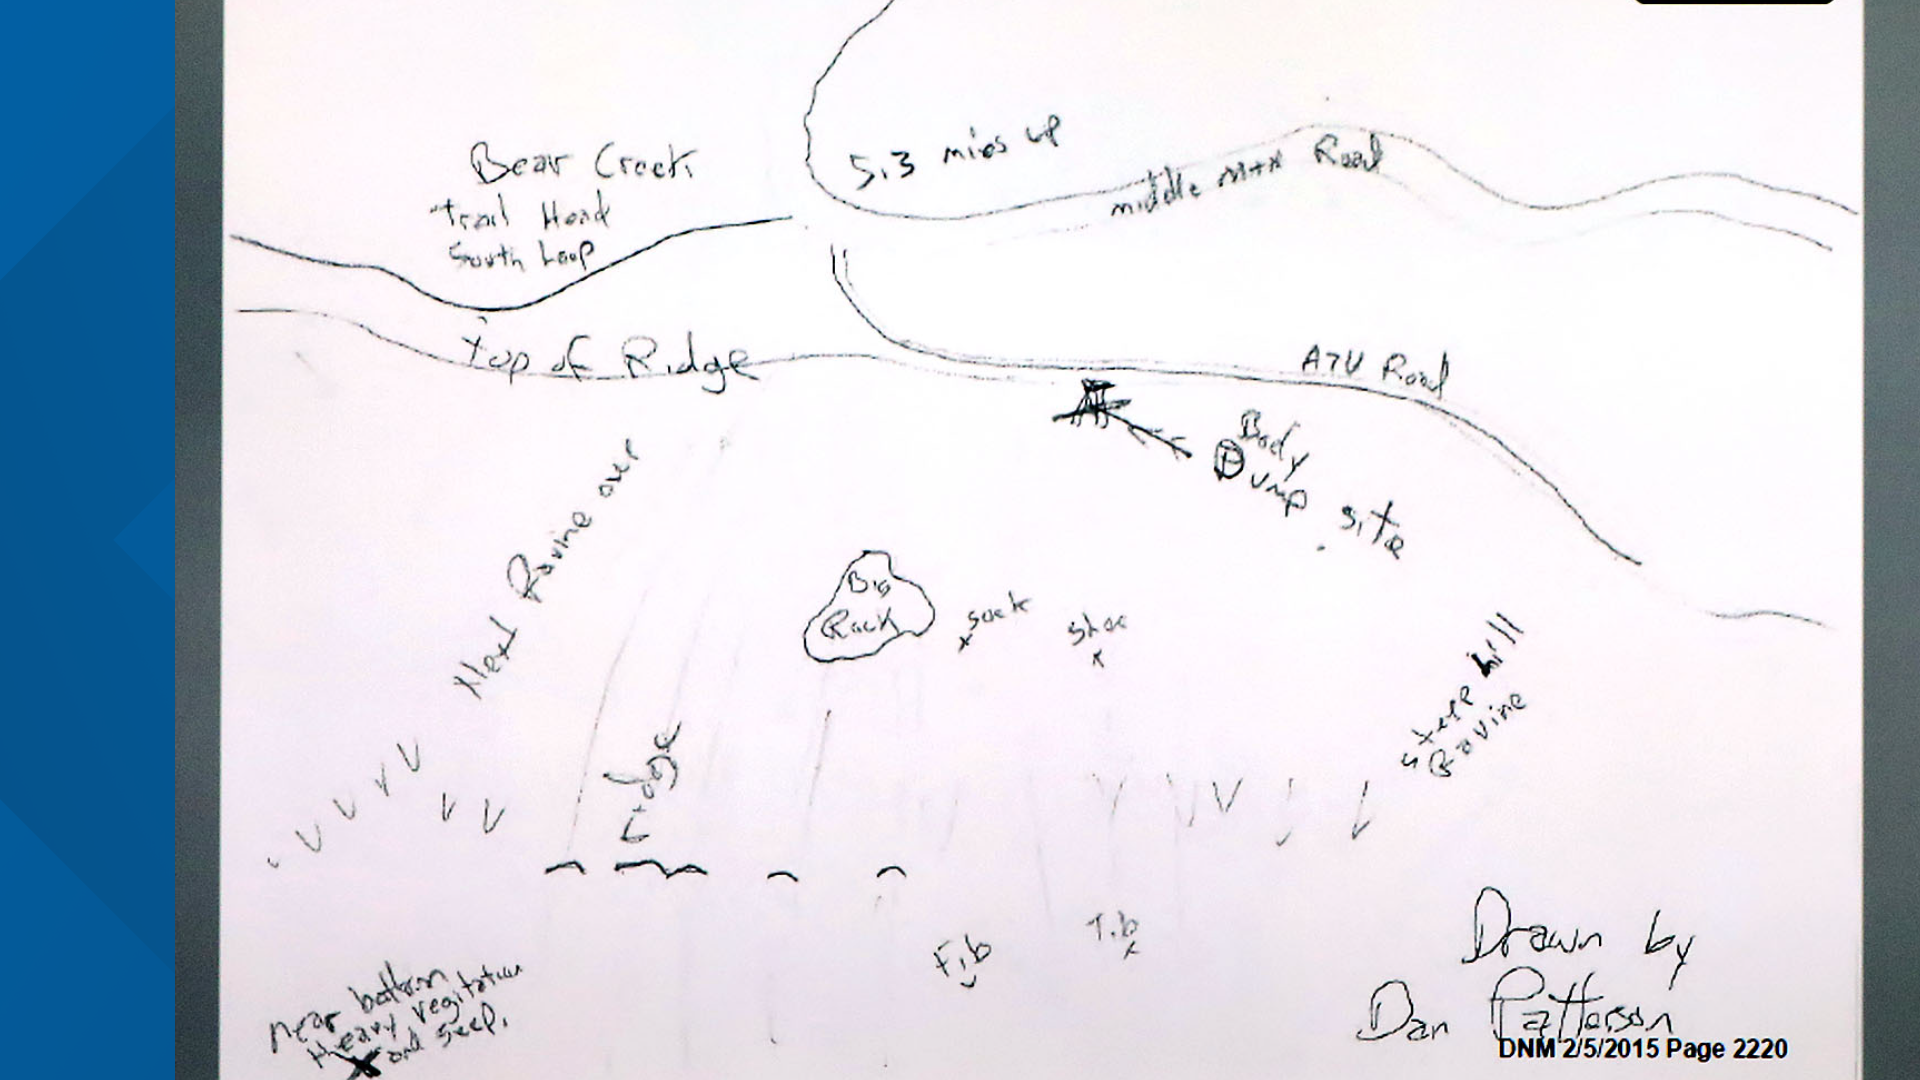 5.3 miles up
Bear Creek
Trail Head
South Loop
middle Mtn Road
Top of Ridge
ATV Road
Body
Dump site
Next Ravine over
Big
Rock
sock
shoe
steep hill
Ravine
ridge
Fib
Tib
near bottom
Heavy vegitation
and seep.
Drawn by
Dan Patterson
DNM 2/5/2015 Page 2220